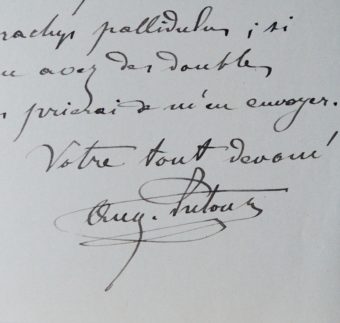 rachys pallidulus ; si
u avez des doubles
s prierai de m'en envoyer.
Votre tout dévoué
Aug.